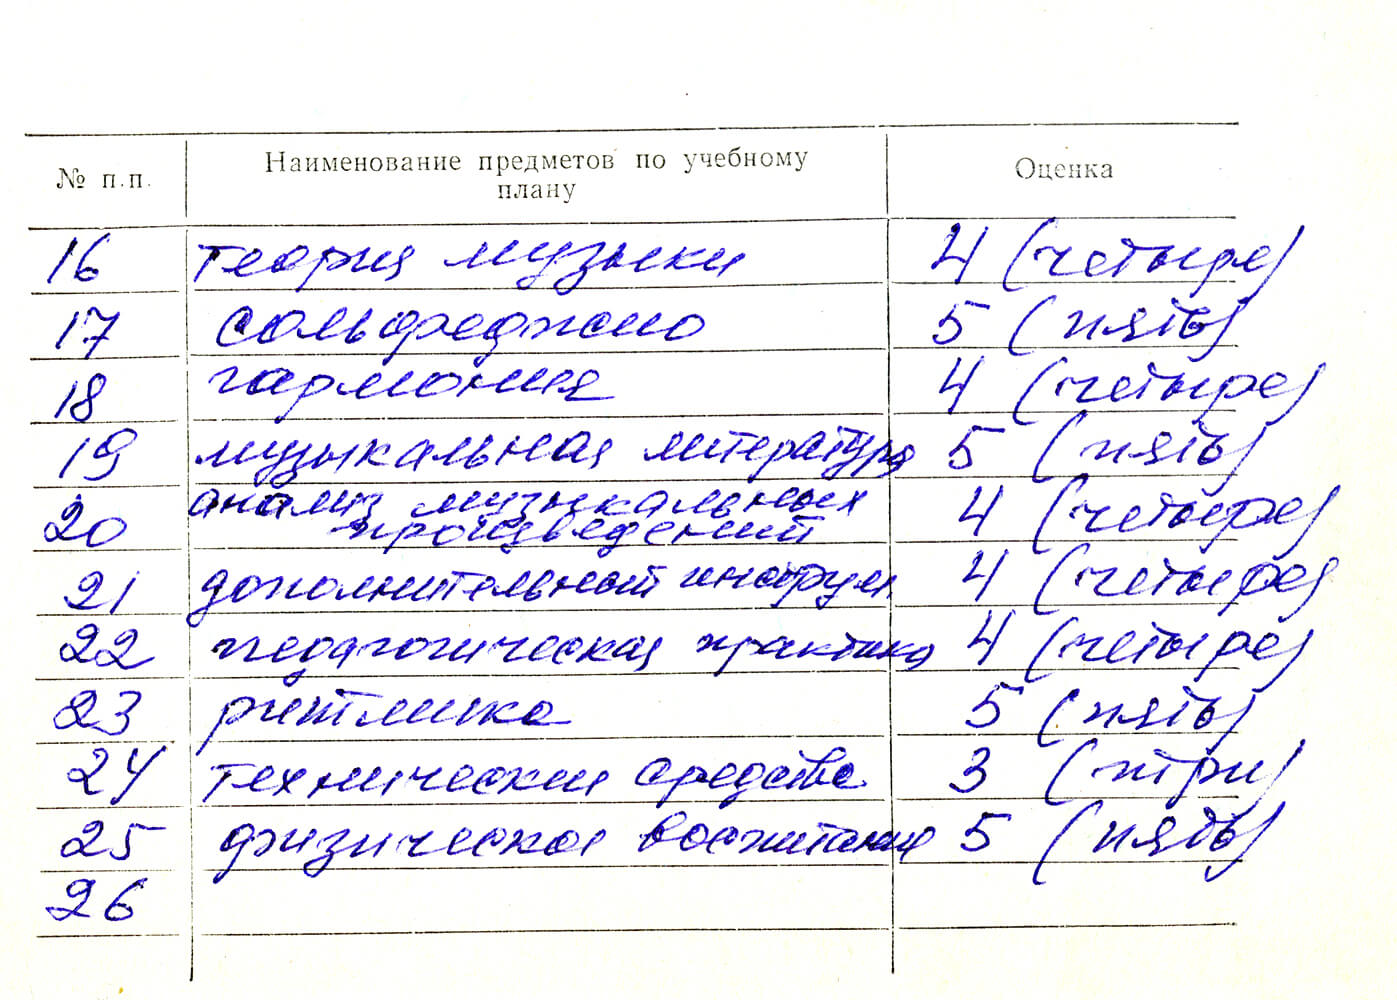 № п.п. Наименование предметов по учебному Оценка
плану
16 теория музыки 4 (четыре)
17 сольфеджио 5 (пять)
18 гармония 4 (четыре)
19 музыкальная литература 5 (пять)
20 анализ музыкальных 4 (четыре)
произведений
21 дополнительный инструм. 4 (четыре)
22 педагогическая практика 4 (четыре)
23 ритмика 5 (пять)
24 технические средства 3 (три)
25 физическое воспитание 5 (пять)
26